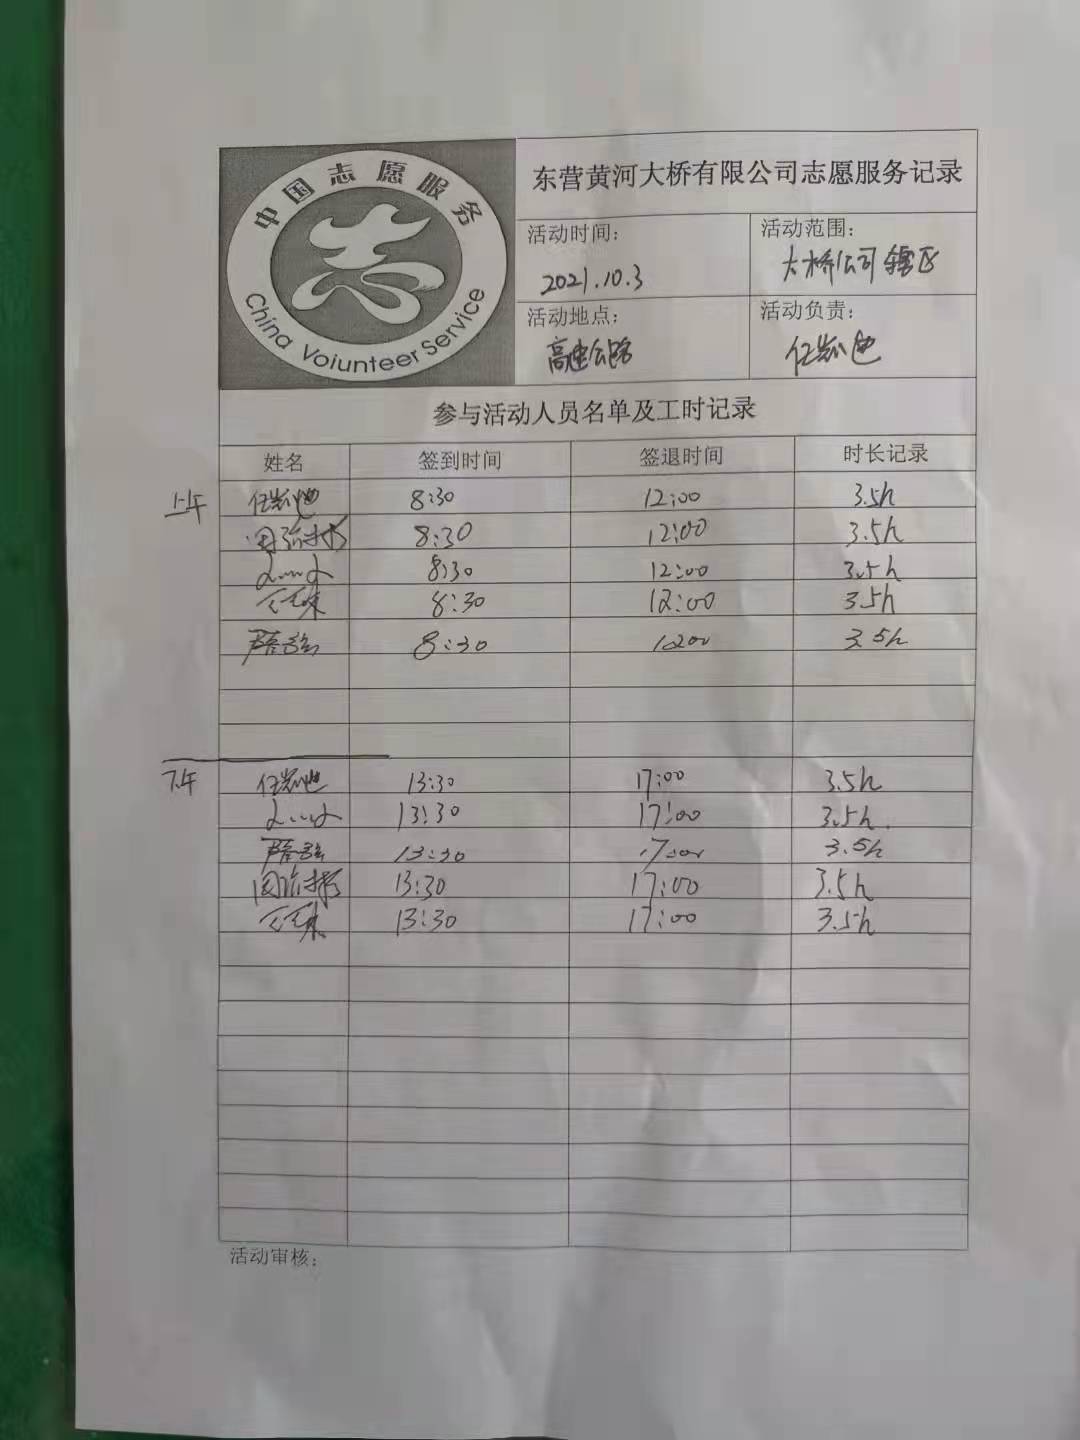 中国志愿服务
China Voiunteer Service
东营黄河大桥有限公司志愿服务记录
活动时间：
2021.10.3
活动范围：
大桥公司辖区
活动地点：
高速公路
活动负责：
参与活动人员名单及工时记录
姓名 签到时间 签退时间 时长记录
上午
8:30 12:00 3.5h
8:30 12:00 3.5h
8:30 12:00 3.5h
8:30 12:00 3.5h
8:30 1200 3.5h
下午
13:30 17:00 3.5h
13:30 17:00 3.5h.
13:30 3.5h
13:30 17:00 3.5h
13:30 17:00 3.5h
活动审核：